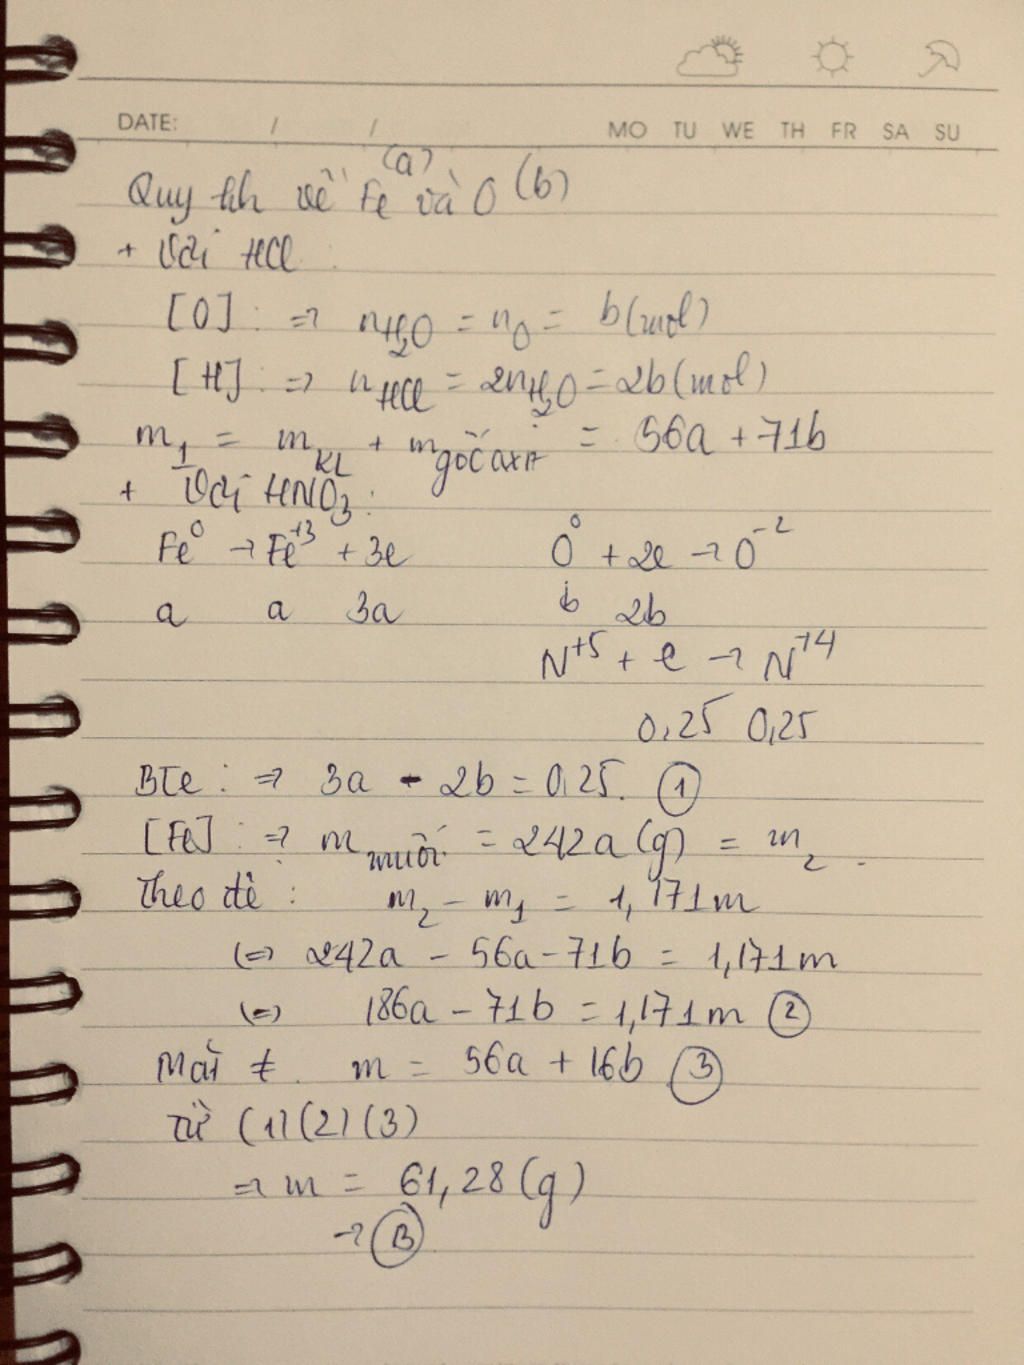 DATE: / /
MO TU WE TH FR SA SU
Quy hh về Fe (a) và O (b)
+ Với HCl :
[O] : => nH₂O = nO = b (mol)
[H] : => nHCl = 2nH₂O = 2b (mol)
m₁ = mKL + mgốc axit = 56a + 71b
+ Với HNO₃ :
Fe⁰ → Fe⁺³ + 3e O⁰ + 2e → O⁻²
a a 3a b 2b
N⁺⁵ + e → N⁺⁴
0,25 0,25
BTe : => 3a - 2b = 0,25. ①
[Fe] : => mmuối = 242a (g) = m₂.
Theo đề : m₂ - m₁ = 1,171m
(=) 242a - 56a - 71b = 1,171m
(=) 186a - 71b = 1,171m ②
Mặt ≠. m = 56a + 16b ③
Từ (1) (2) (3)
=> m = 61,28 (g)
→ Ⓑ